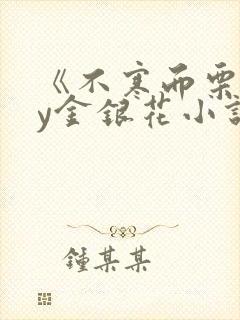 《不寒而栗
y金银花小說
鍾某某